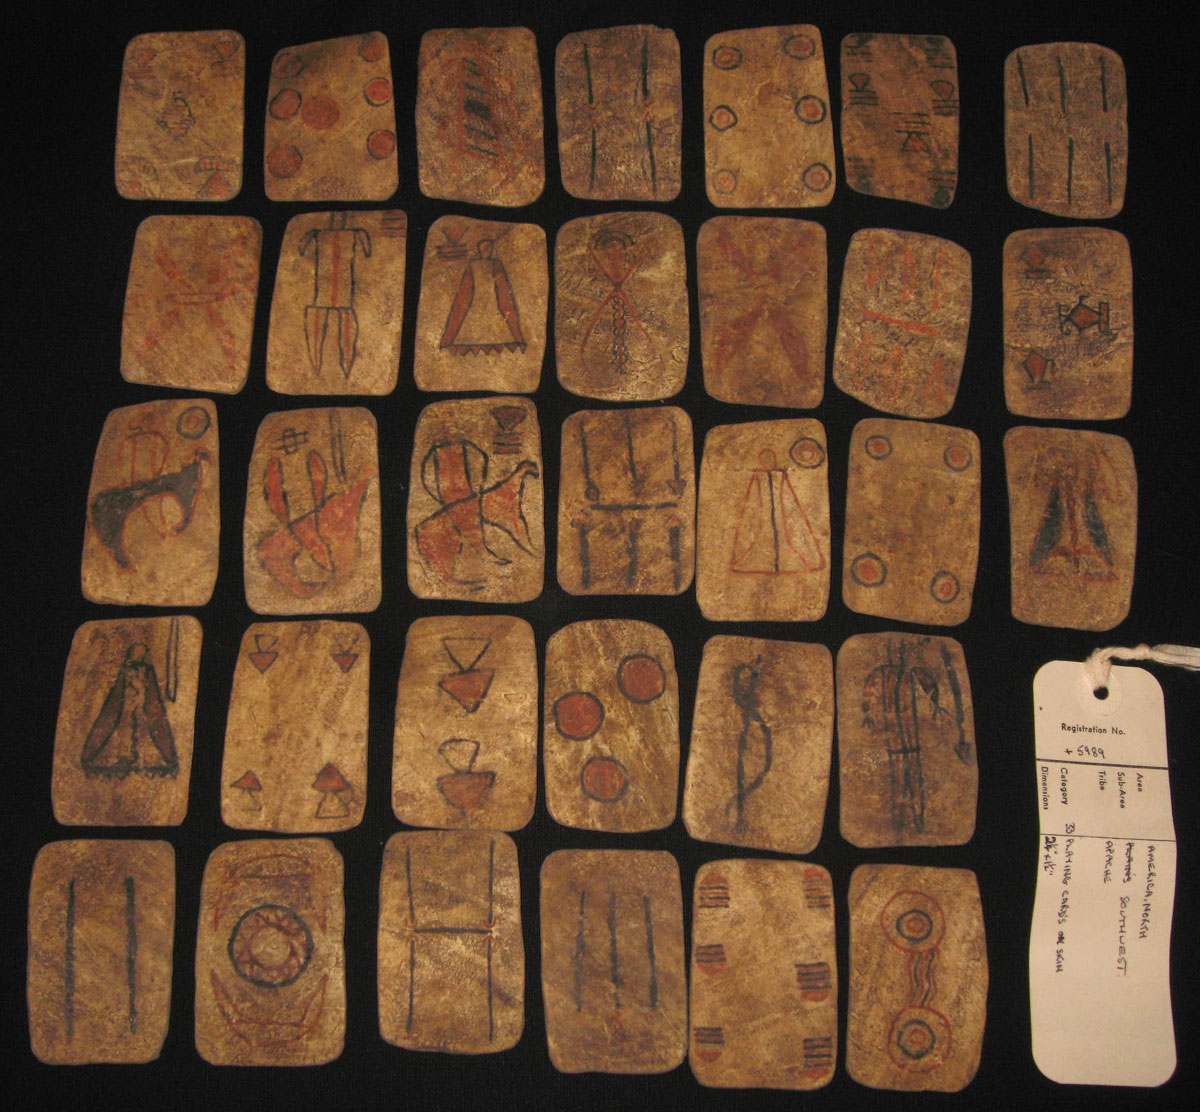 Registration No.
+ 5989
Area AMERICA, NORTH
Sub-Area PLAINS SOUTHWEST.
Tribe APACHE
Category 33 PLAYING CARDS OF SKIN
Dimensions